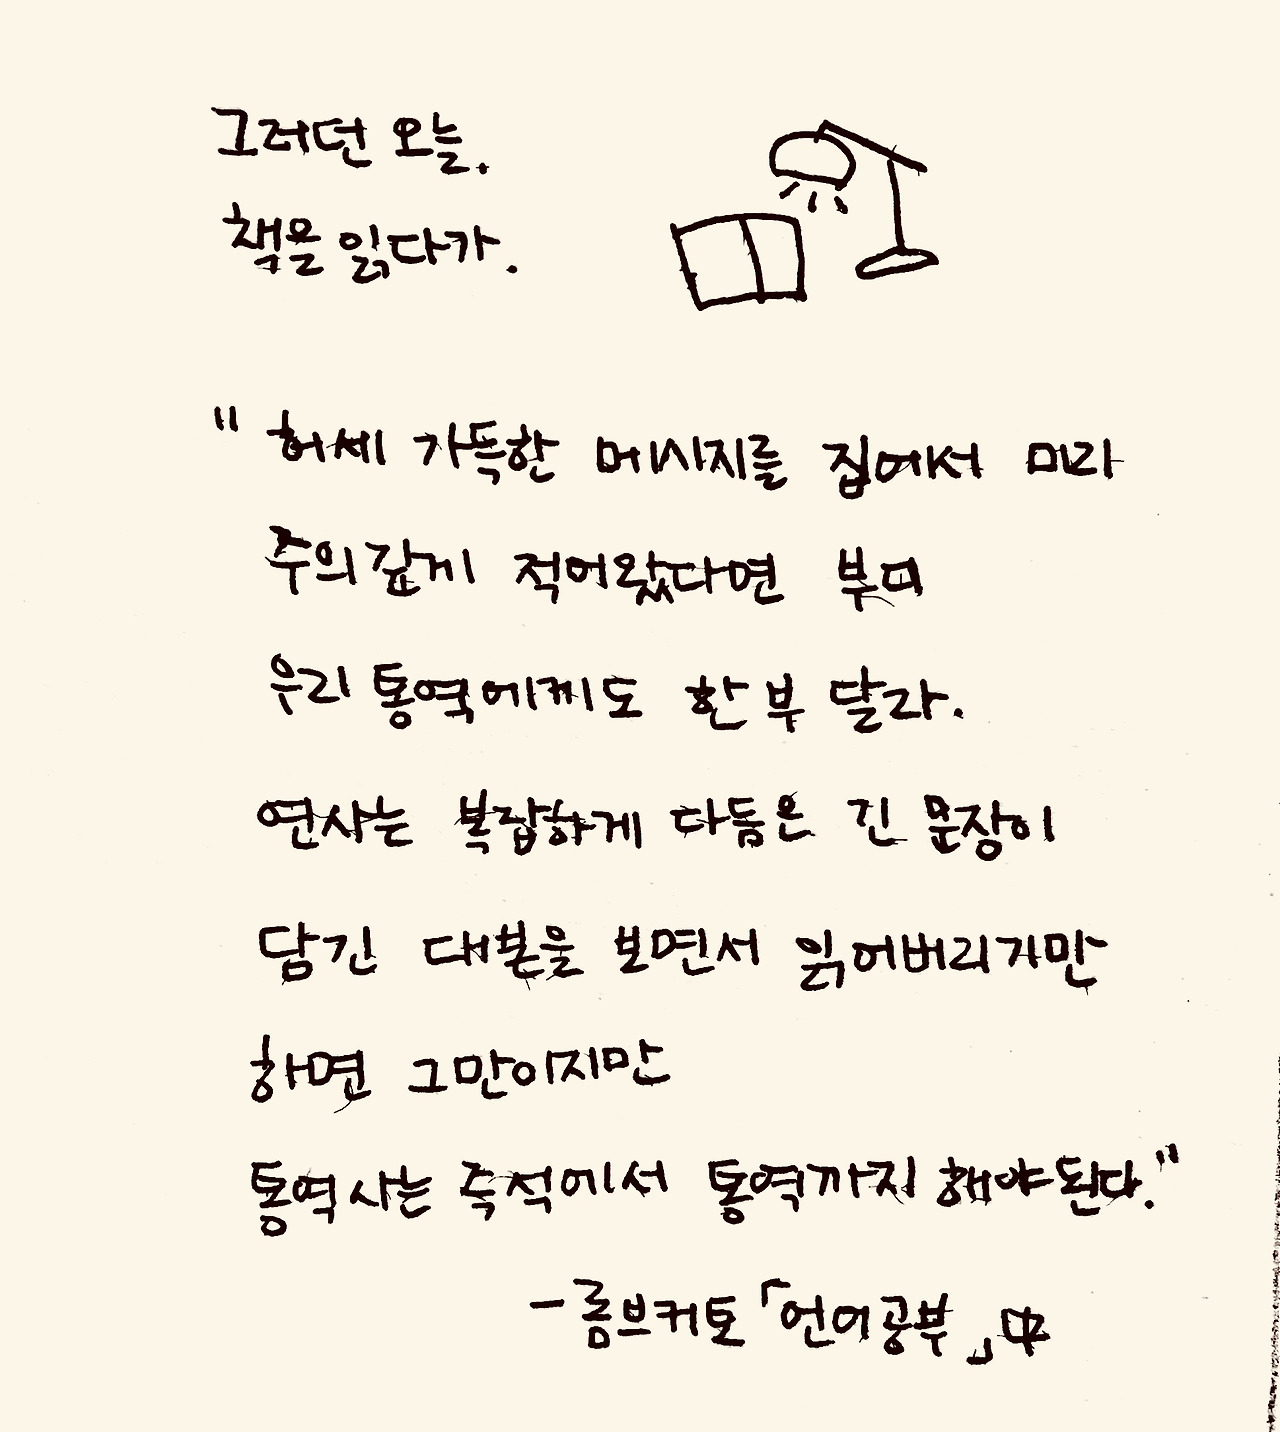 그러던 오늘.
책을 읽다가.
"허세 가득한 메시지를 집에서 미리
주의깊게 적어왔다면 부디
우리 통역에게도 한 부 달라.
연사는 복잡하게 다듬은 긴 문장이
담긴 대본을 보면서 읽어버리기만
하면 그만이지만
통역사는 즉석에서 통역까지 해야된다."
- 롬브커토「언어공부」中